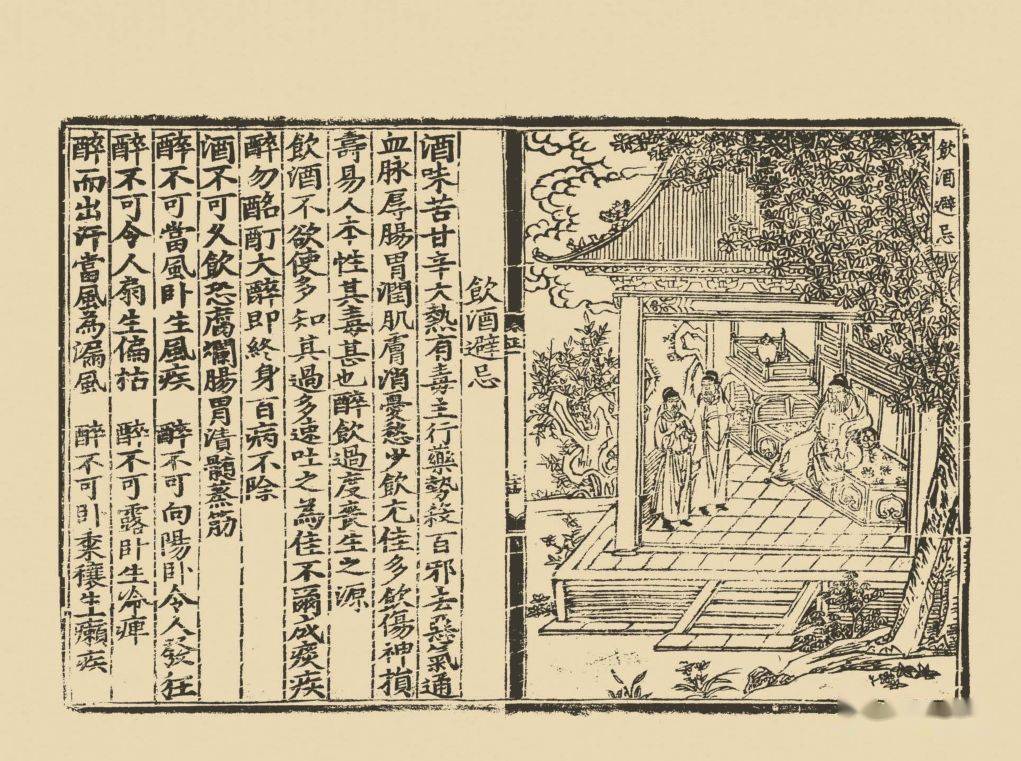 飲酒避忌
飲酒避忌
酒味苦甘辛大熱有毒主行藥勢殺百邪去惡氣通
血脉厚腸胃潤肌膚消憂愁少飲尤佳多飲傷神損
壽易人本性其毒甚也醉飲過度喪生之源
飲酒不欲使多知其過多速吐之為佳不爾成痰疾
醉勿酩酊大醉即終身百病不除
酒不可久飲恐腐爛腸胃漬髓蒸筋
醉不可當風卧生風疾 醉不可向陽卧令人發狂
醉不可令人扇生偏枯 醉不可露卧生冷痺
醉而出汗當風為漏風 醉不可卧黍穰生癩疾